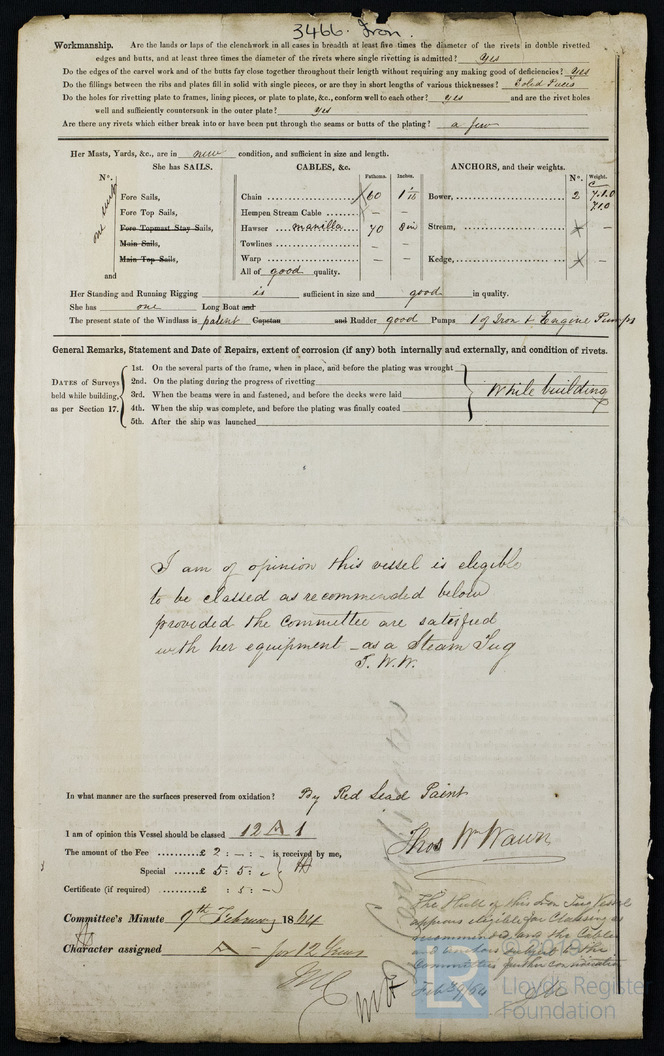 3466. Iron.
Workmanship. Are the lands or laps of the clenchwork in all cases in breadth at least five times the diameter of the rivets in double rivetted
edges and butts, and at least three times the diameter of the rivets where single rivetting is admitted? yes
Do the edges of the carvel work and of the butts fay close together throughout their length without requiring any making good of deficiencies? yes
Do the fillings between the ribs and plates fill in solid with single pieces, or are they in short lengths of various thicknesses? Solid Pieces
Do the holes for rivetting plate to frames, lining pieces, or plate to plate, &c., conform well to each other? yes and are the rivet holes
well and sufficiently countersunk in the outer plate? yes
Are there any rivets which either break into or have been put through the seams or butts of the plating? a few
Her Masts, Yards, &c., are in new condition, and sufficient in size and length.
She has SAILS. CABLES, &c. ANCHORS, and their weights.
N°. Fathoms. Inches. N°. Weight.
one suit
Fore Sails, Chain 60 1 1/16 Bower, 2 7.1.0
7.1.0
Fore Top Sails, Hempen Stream Cable – –
Fore Topmast Stay Sails, Hawser manilla 70 8 in Stream, –
Main Sails, Towlines – –
Main Top Sails, Warp – – Kedge, –
and All of good quality.
Her Standing and Running Rigging is sufficient in size and good in quality.
She has one Long Boat and
The present state of the Windlass is patent Capstan and Rudder good Pumps 1 of Iron & Engine Pumps
General Remarks, Statement and Date of Repairs, extent of corrosion (if any) both internally and externally, and condition of rivets.
DATES of Surveys held while building, as per Section 17.
1st. On the several parts of the frame, when in place, and before the plating was wrought
2nd. On the plating during the progress of rivetting
3rd. When the beams were in and fastened, and before the decks were laid
4th. When the ship was complete, and before the plating was finally coated
5th. After the ship was launched
While building
I am of opinion this vessel is eligible
to be classed as recommended below
provided the Committee are satisfied
with her equipment – as a Steam Tug
T. W. W.
In what manner are the surfaces preserved from oxidation? By Red Lead Paint
I am of opinion this Vessel should be classed 12 A 1
Thos Wm Wawn
The amount of the Fee £ 2 : – : – is received by me,
Special £ 5 : 5 : –
Certificate (if required) £ : 5 : –
Committee's Minute 9th February 1864
Character assigned A – for 12 Years
The Hull of this Iron Tug Vessel
appears eligible for Classing as
recommended, and the Cables
and Anchors subject to the
Committee's further consideration
Feb 9/64
© 2019
LR
Lloyd's Register
Foundation